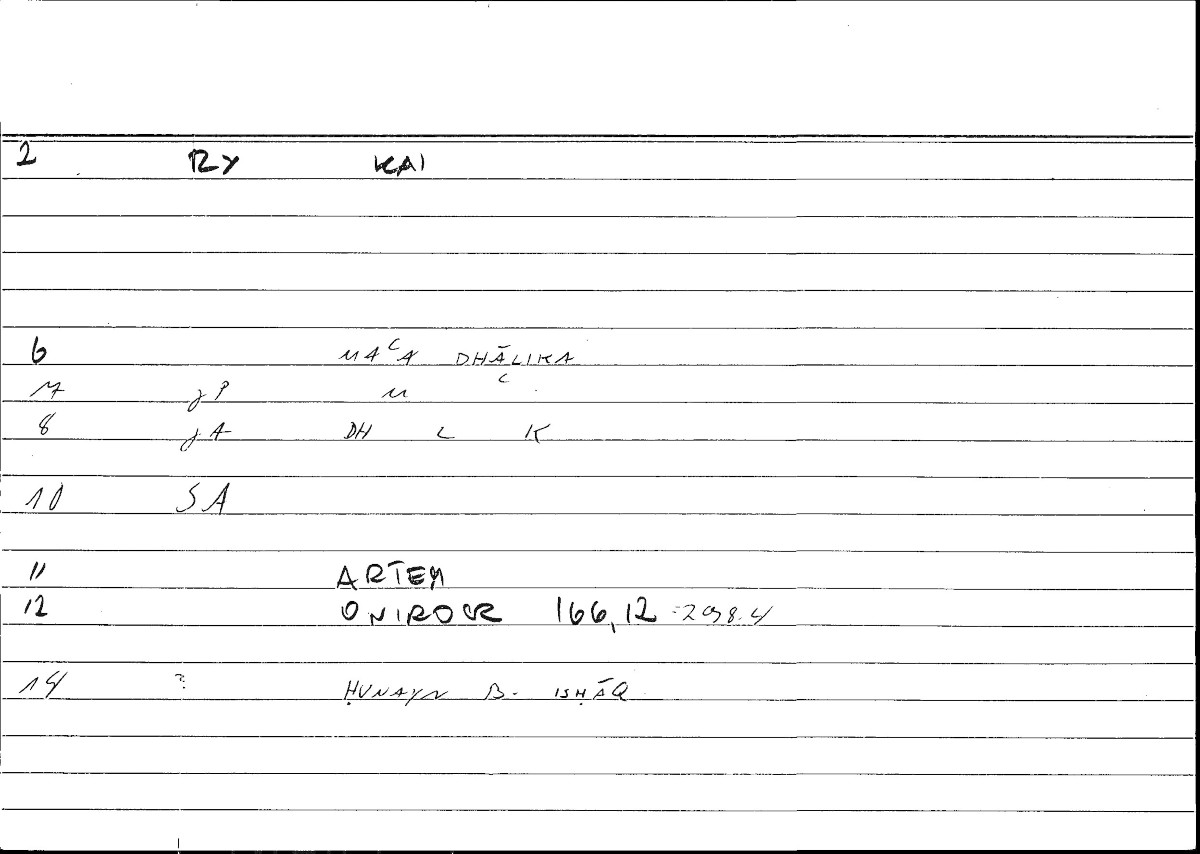 2 RY KAI
6 MAᶜA DHĀLIKA
7 jP M ᶜ
8 jA DH L K
10 SA
11 ARTEM
12 ONIROCR 166,12 =298.4
14 ? ḤUNAYN B. ISḤĀQ